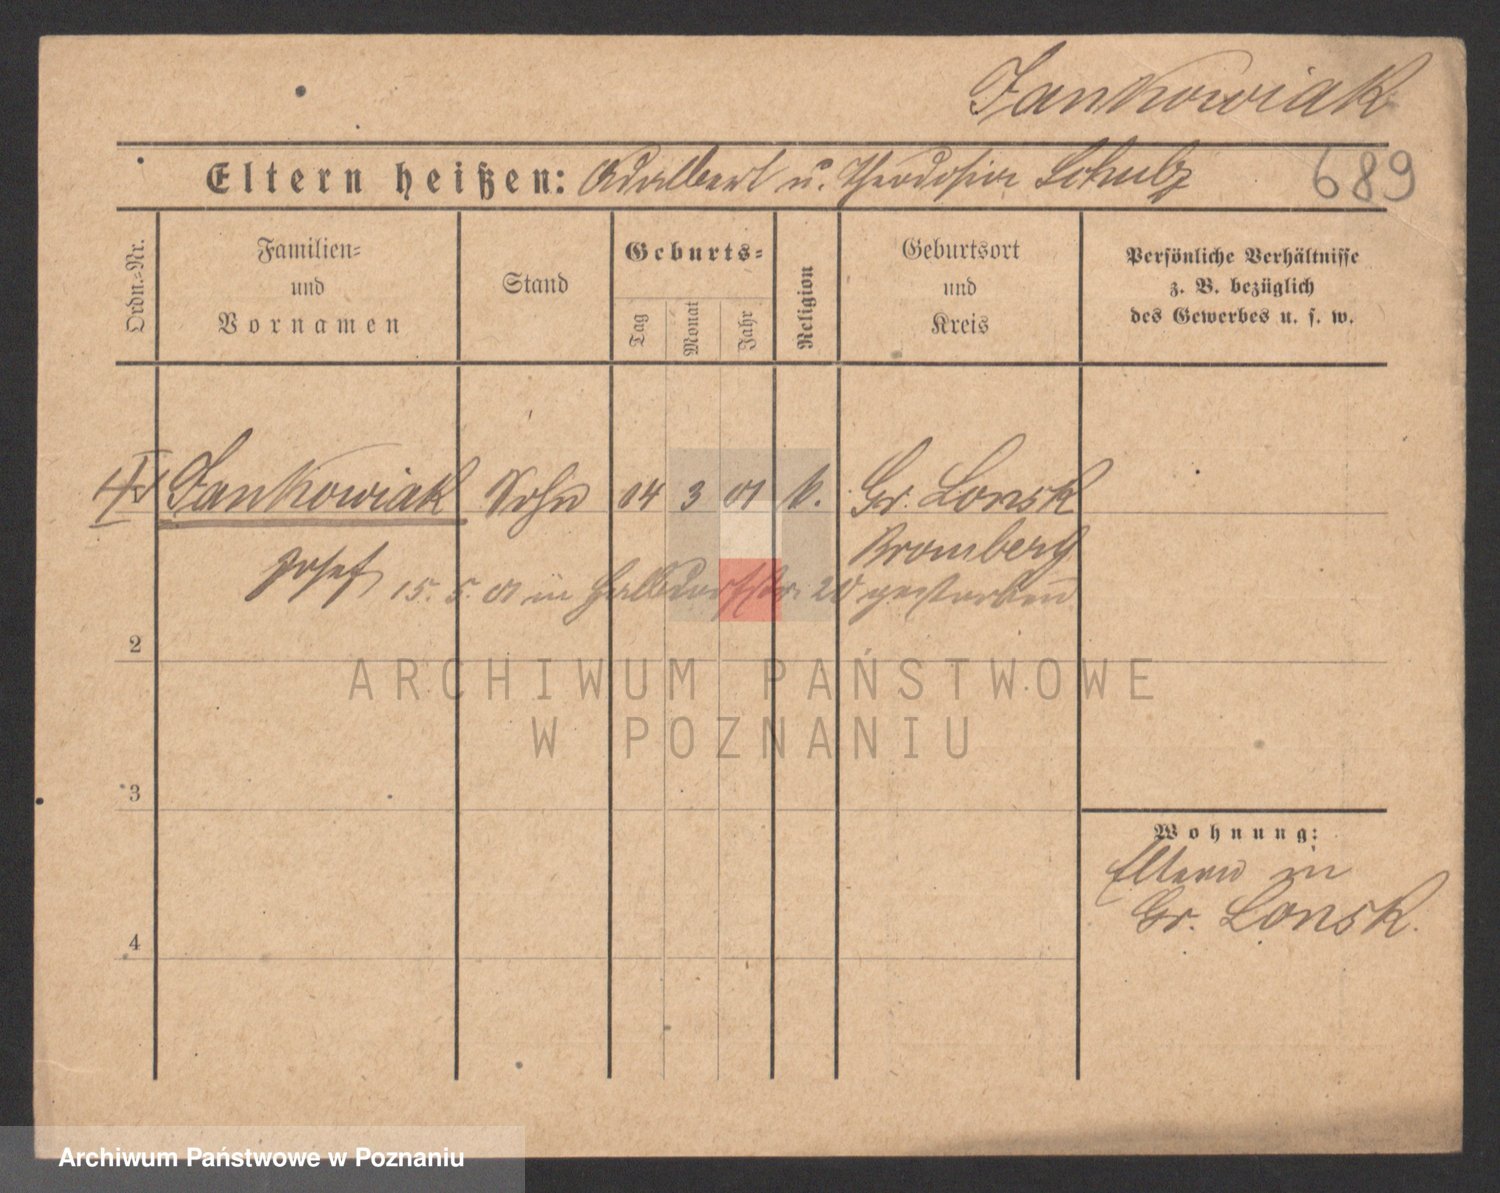 Jankowiak
Eltern heißen: Adalbert u. Theodosia Schulz
689
Ordn.=Nr.
Familien=
und
Vornamen
Stand
Geburts=
Tag
Monat
Jahr
Religion
Geburtsort
und
Kreis
Persönliche Verhältnisse
z. B. bezüglich
des Gewerbes u. s. w.
Jankowiak Sohn 14 3 01 k. Gr. Lonsk
Bromberg
Josef
15. 5. 01 in 20 gestorben
2
3
4
Wohnung:
Eltern in
Gr. Lonsk.
ARCHIWUM PAŃSTWOWE
W POZNANIU
Archiwum Państwowe w Poznaniu